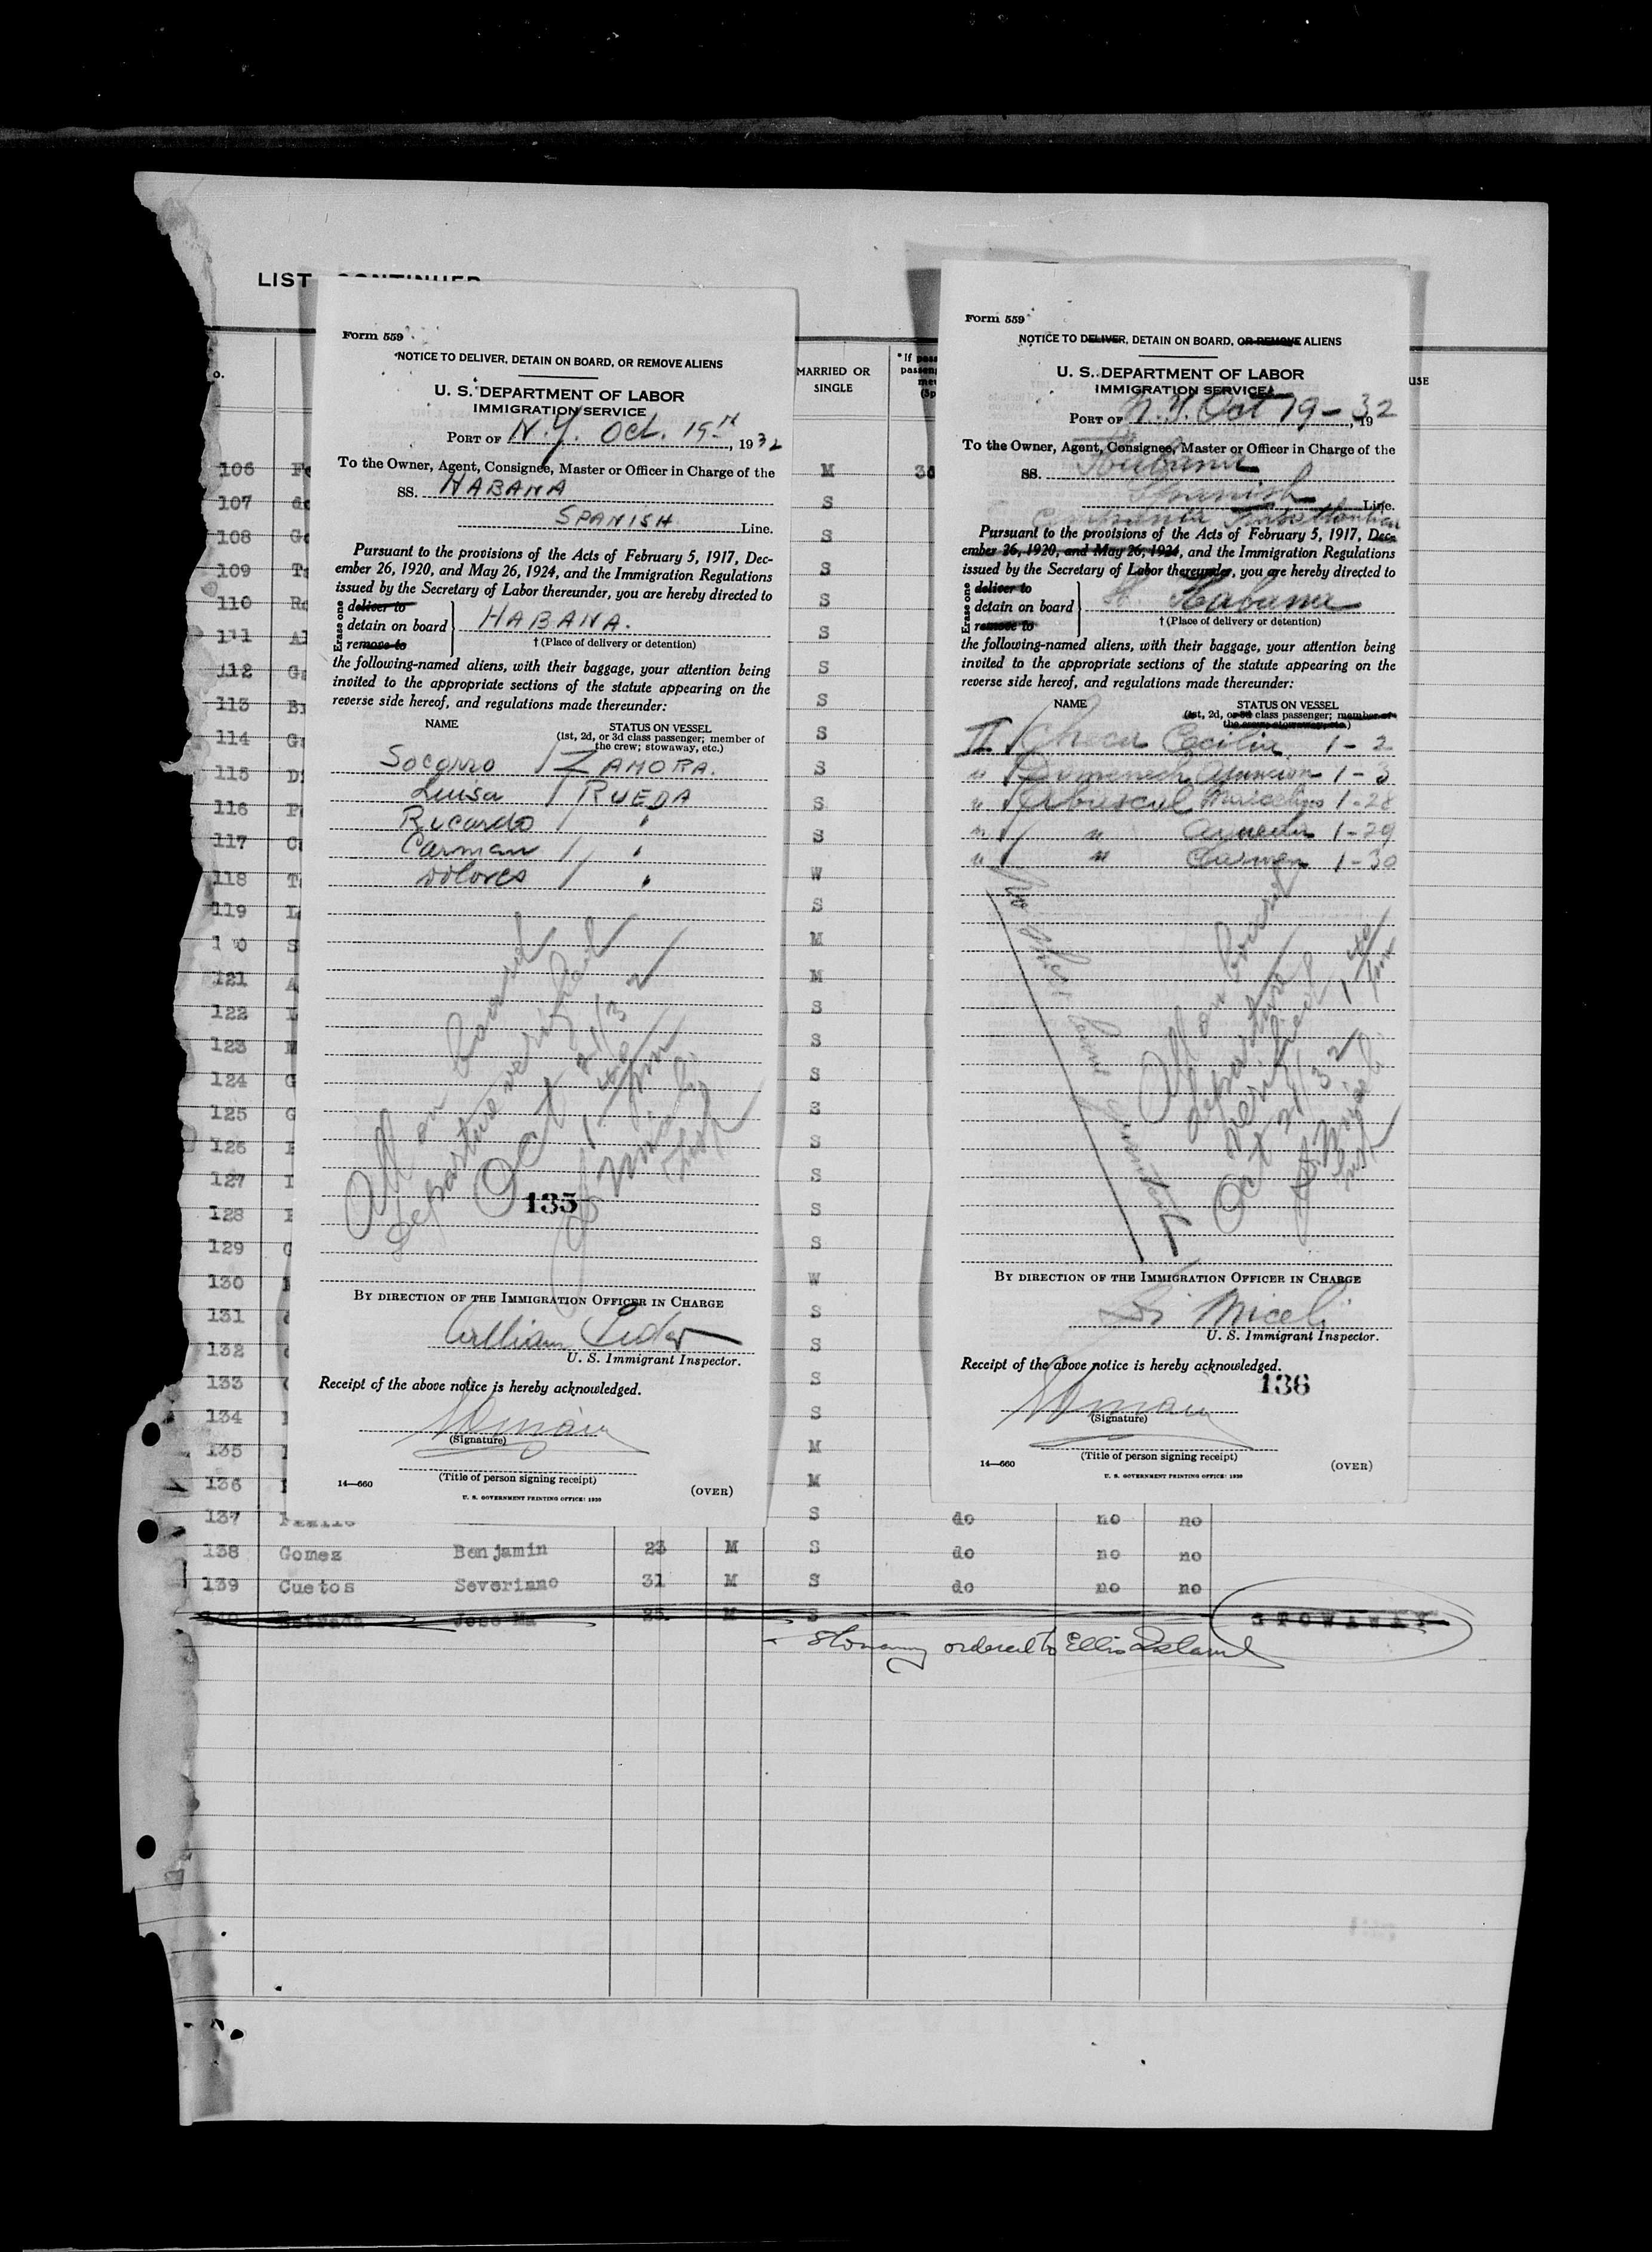 LIST CONTINUED
Form 559
NOTICE TO DELIVER, DETAIN ON BOARD, OR REMOVE ALIENS
U. S. DEPARTMENT OF LABOR
IMMIGRATION SERVICE
PORT OF N.Y. Oct. 19th, 1932
To the Owner, Agent, Consignee, Master or Officer in Charge of the
SS. HABANA
SPANISH Line.
Pursuant to the provisions of the Acts of February 5, 1917, Dec-
ember 26, 1920, and May 26, 1924, and the Immigration Regulations
issued by the Secretary of Labor thereunder, you are hereby directed to
Erase one
deliver to
detain on board HABANA.
remove to
† (Place of delivery or detention)
the following-named aliens, with their baggage, your attention being
invited to the appropriate sections of the statute appearing on the
reverse side hereof, and regulations made thereunder:
NAME STATUS ON VESSEL
(1st, 2d, or 3d class passenger; member of
the crew; stowaway, etc.)
Socorro / ZAMORA.
Luisa / RUEDA
Ricardo / "
Carman / "
Dolores / "
All on board
departure verified
Oct 21/32
1 40 pm
135
BY DIRECTION OF THE IMMIGRATION OFFICER IN CHARGE
William
U. S. Immigrant Inspector.
Receipt of the above notice is hereby acknowledged.
(Signature)
(Title of person signing receipt)
14—660
(OVER)
U. S. GOVERNMENT PRINTING OFFICE: 1930
Form 559
NOTICE TO DELIVER, DETAIN ON BOARD, OR REMOVE ALIENS
U. S. DEPARTMENT OF LABOR
IMMIGRATION SERVICE
PORT OF N.Y. Oct 19-, 1932
To the Owner, Agent, Consignee, Master or Officer in Charge of the
SS. Habana
Spanish Line.
Pursuant to the provisions of the Acts of February 5, 1917, Dec-
ember 26, 1920, and May 26, 1924, and the Immigration Regulations
issued by the Secretary of Labor thereunder, you are hereby directed to
Erase one
deliver to
detain on board Habana
remove to
† (Place of delivery or detention)
the following-named aliens, with their baggage, your attention being
invited to the appropriate sections of the statute appearing on the
reverse side hereof, and regulations made thereunder:
NAME STATUS ON VESSEL
(1st, 2d, or 3d class passenger; member of
the crew; stowaway, etc.)
II / Checa Cecilia 1-2
" / Domenech Asuncion 1-3
" / 1-28
" / " 1-29
" / " Carmen 1-30
All on board
departure
verified 1 40 pm
Oct 21/32
BY DIRECTION OF THE IMMIGRATION OFFICER IN CHARGE
Miceli
U. S. Immigrant Inspector.
Receipt of the above notice is hereby acknowledged.
136
(Signature)
(Title of person signing receipt)
14—660
(OVER)
U. S. GOVERNMENT PRINTING OFFICE: 1930
MARRIED OR
SINGLE
106 M
107 S
108 S
109 S
110 S
111 S
112 S
113 S
114 S
115 S
116 S
117 S
118 W
119 S
1 0 M
121 M
122 S
123 S
124 S
125 S
126 S
127 S
128 S
129 S
130 W
131 S
132 S
133 S
134 S
135 M
136 M
137 S do no no
138 Gomez Benjamin 23 M S do no no
139 Cuetos Severiano 31 M S do no no
140 Estrada Jose Ma 25 M S STOWAWAY
Stowaway ordered to Ellis Island